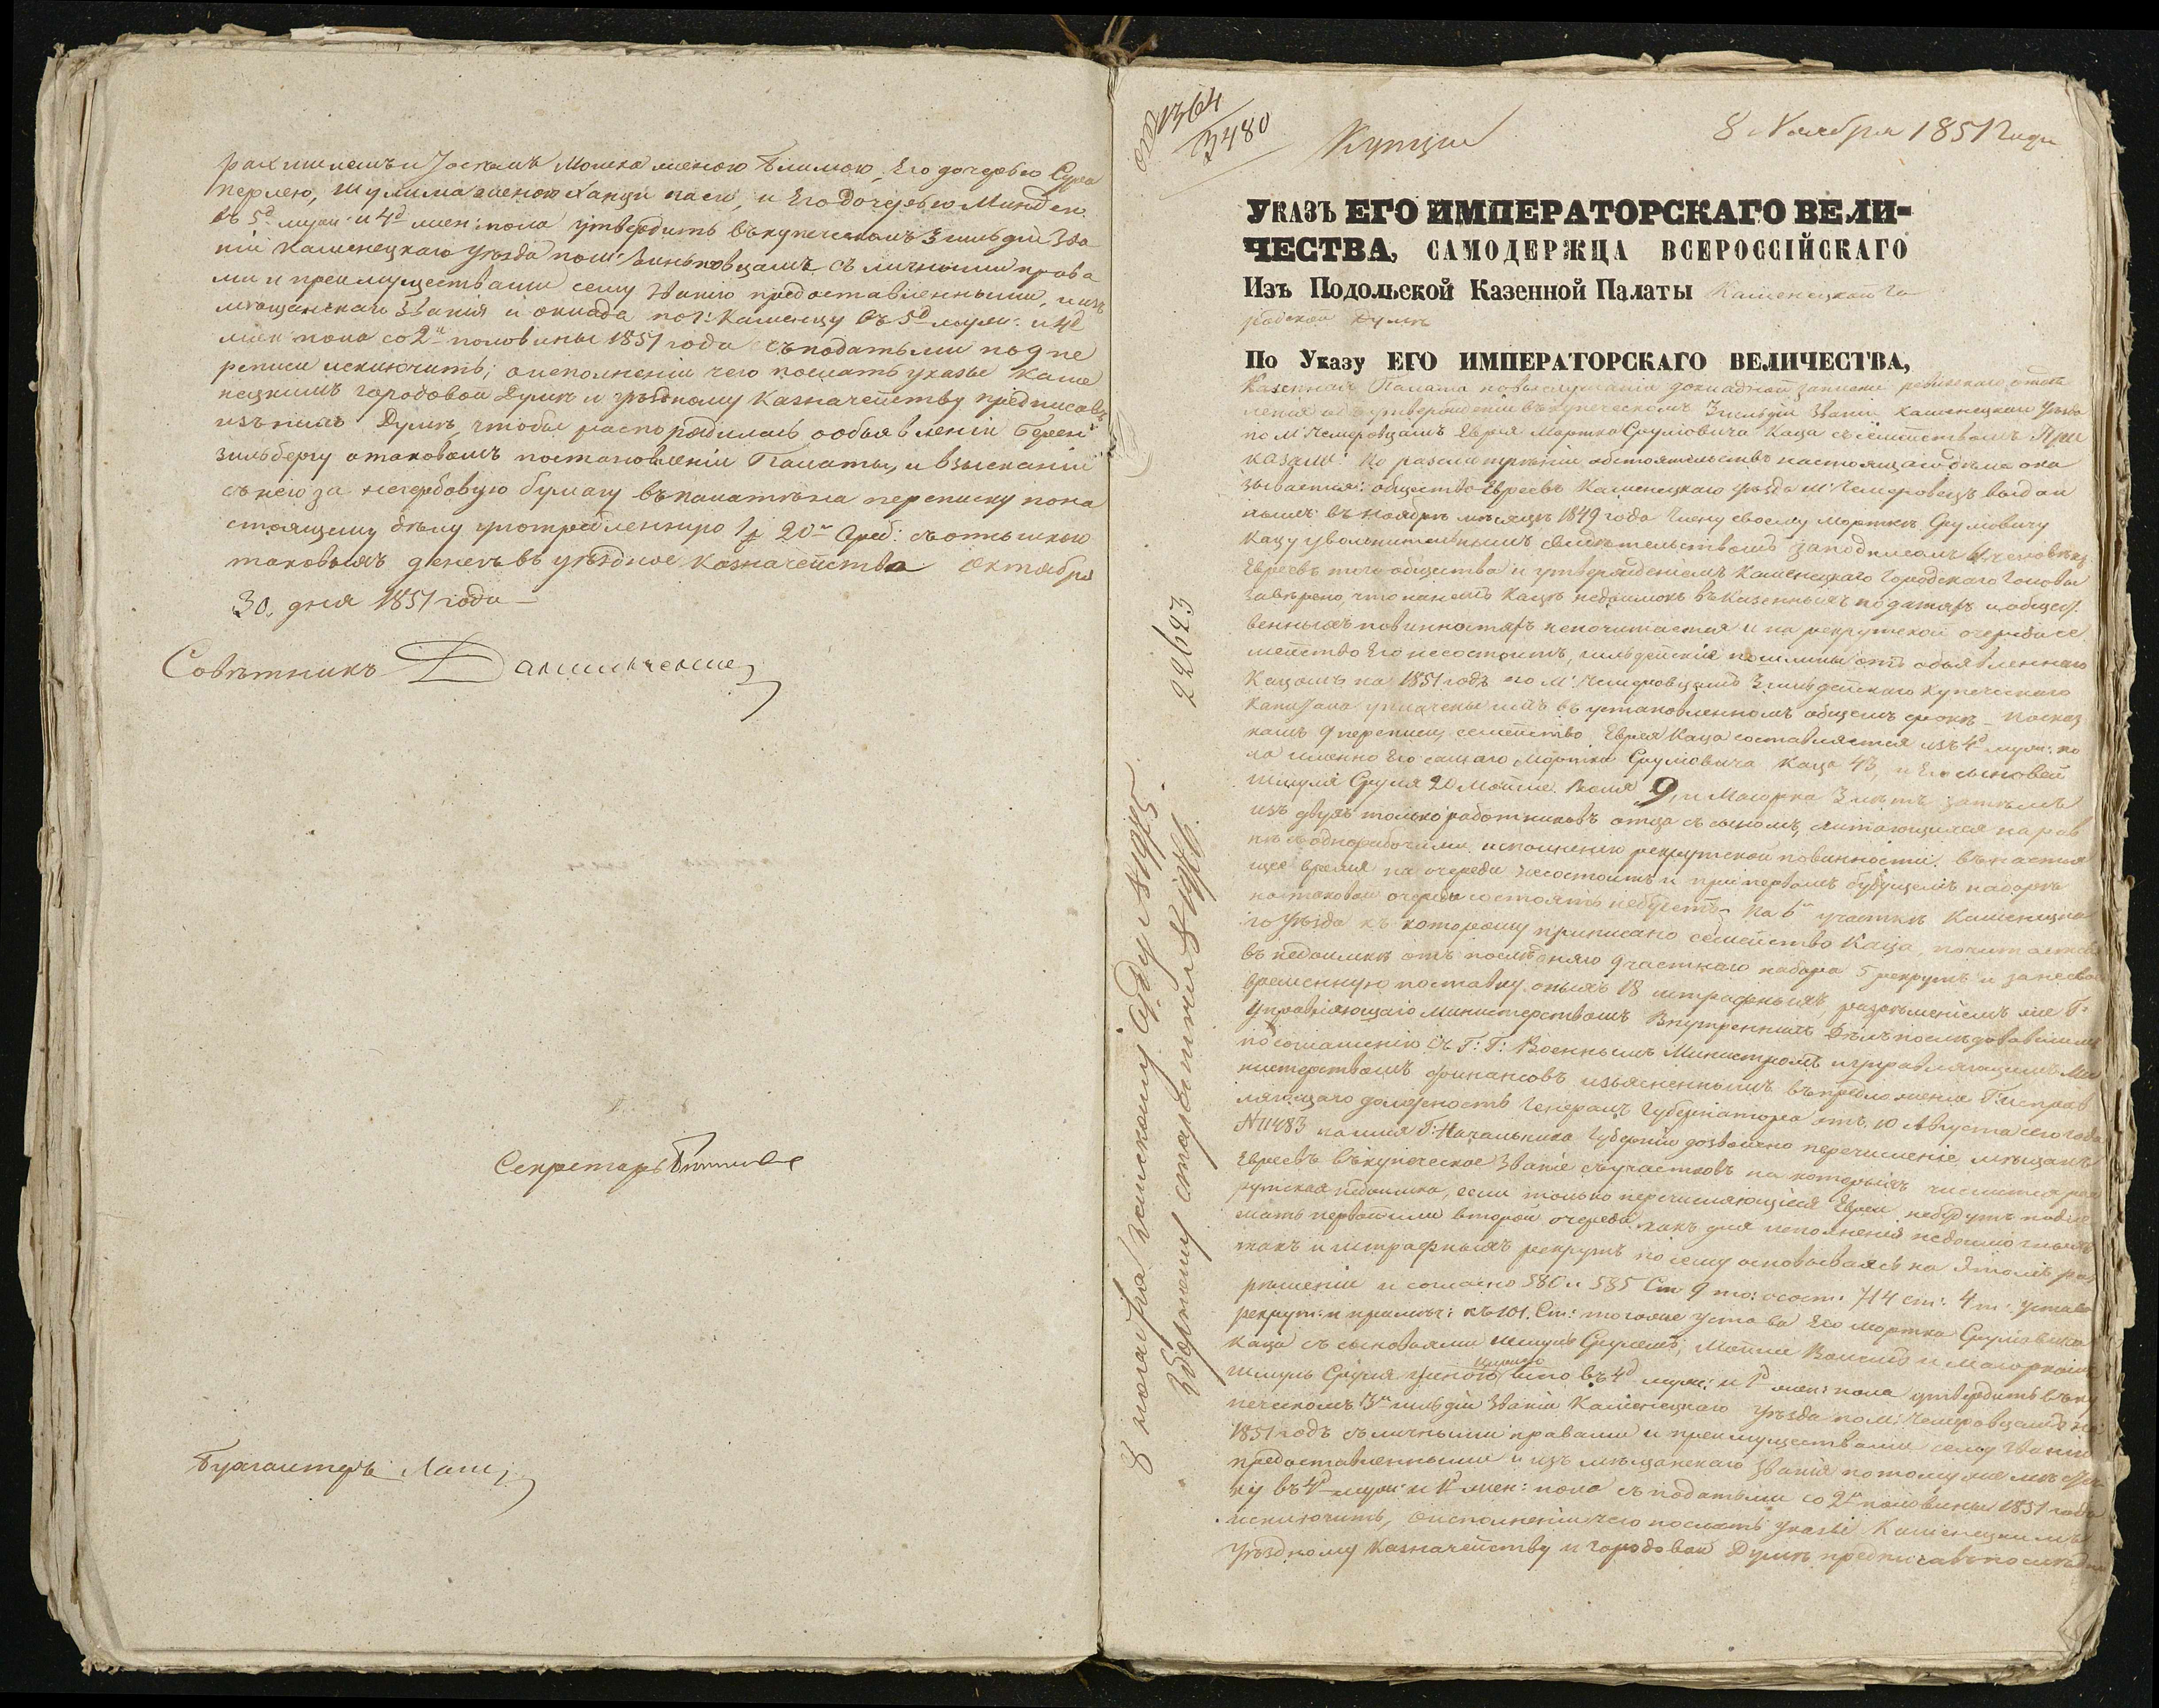 рахмилемъ и Іоселемъ Мошка женою Блимою, Его дочерью Сура
перлею, Шулима женою Ханци паси, и Его дочерью Минден
въ 5д. муж: и 4д жен: пола утвердить въ купеческомъ 3 гильдіи зва
ніи Каменецкаго уѣзда по м: Виньковцамъ съ личными права
ми и преимуществами сему званію предоставленными, и изъ
мѣщанскаго званія и оклада по г: Каменцу въ 5д муж: и 4д
жен пола со 2й половины 1851 года съ податьми по 9 пе
реписи исключить; о исполненіи чего послать указы Каме
нецкимъ городовой Думѣ и уѣздному Казначейству предписавъ
изъ нихъ Думѣ, чтобы распорядилась о объявленіи Берен
зильбергу о таковомъ постановленіи Палаты, и взысканіи
съ него за негербовую бумагу въ палатѣ на переписку по на
стоящему дѣлу употребленную 1 р 20 к Сереб: съ отсылкою
таковыхъ денегъ въ уѣздное казначейство Октября
30 дня 1851 года
Совѣтникъ
Секретарь
Бухгалтеръ
1364
3480
Купцы
8 Ноября 1851 года
УКАЗЪ ЕГО ИМПЕРАТОРСКАГО ВЕЛИ-
ЧЕСТВА, САМОДЕРЖЦА ВСЕРОССІЙСКАГО
Изъ Подольской Казенной Палаты Каменецкой Го
родской Думѣ
По Указу ЕГО ИМПЕРАТОРСКАГО ВЕЛИЧЕСТВА,
Казенная Палата по выслушаніи докладной записки ревизскаго отдѣ
ленія объ утвержденіи въ купеческомъ 3 гильдіи званіи Каменецкаго уѣзда
по м Чемеровцамъ Еврея Мортка Сруловича Каца съ семействомъ При
казали: По разсмотрѣніи обстоятельствъ настоящаго дѣла ока
зывается: общество Евреевъ Каменецкаго уѣзда м: Чемеровецъ выдан
нымъ въ Ноябрѣ мѣсяцѣ 1849 года члену своему Морткѣ Сруловичу
Кацу увольнительнымъ свидѣтельствомъ за подписомъ человѣкъ
Евреевъ того общества и утвержденіемъ Каменецкаго Городскаго Головы
завѣрено, что на немъ Кацѣ недоимокъ въ казенныхъ податяхъ и общест
венныхъ повинностяхъ не почитается и на рекрутской очереди се
мейство Его не состоитъ, гильдейскія пошлины отъ объявленнаго
Кацомъ на 1851 годъ по м: Чемеровцамъ 3 гильдейскаго купеческаго
Капитала уплачены имъ въ установленномъ общемъ срокѣ – По сказ
камъ 9 переписи семейство Еврея Каца составляется изъ 4д муж: по
ла именно Его самаго Мортка Сруловича Каца 43, и Его сыновей
Шмуля Сруля 20 Мошие Волия 9, и Маіорка 3 лѣтъ затѣмъ
изъ двухъ только работниковъ отца съ сыномъ, считающихся нарав
нѣ съ однорабочими исполненію рекрутской повинности въ настоя
щее время на очереди не состоитъ и при первомъ будущемъ наборѣ
на таковой очереди состоять не будетъ, на 6м участкѣ Каменецка
го уѣзда къ которому приписано семейство Каца, почитается
въ недоимкѣ отъ послѣдняго 9 частнаго набора 5 рекрутъ и за несвое
временную поставку оныхъ 18 штрафныхъ, разрѣшеніемъ же Г:
Управляющаго Министерствомъ Внутреннихъ Дѣлъ послѣдовавшимъ
по соглашенію съ Г: Г: Военнымъ Министромъ и управляющимъ Ми
нистерствомъ финансовъ изъясненнымъ въ предложеніи Г. исправ
ляющаго должность Генералъ Губернатора отъ 10 Августа сего года
№ 11483 на имя Г: Начальника Губерніи дозволено перечисленіе мѣщанъ
Евреевъ въ купеческое званіе съ участковъ на которыхъ числится рек
рутская недоимка, если только перечисляющіеся Евреи небудутъ подле
жать первой или второй очереди какъ для пополненія недоимочныхъ
такъ и штрафныхъ рекрутъ по сему основываясь на этомъ раз
рѣшеніи и согласно 580 и 585 Ст 9 то: о сост: 714 ст: 4 т: устава
рекрут: и примѣч: къ 101. Ст: того же устава Его Мортка Сруловича
Каца съ сыновьями Шмуль Срулемъ, Мошие и Маіоркомъ
Шмуль Сруля женою въ 4д муж: и 1д жен: пола утвердить въ ку
печескомъ 3й гильдіи званіи Каменецкаго уѣзда по м: Чемеровцамъ на
1851 годъ съ личными правами и преимуществами сему званію
предоставленными и изъ мѣщанскаго званія по тому же мѣстеч
ку въ 4д муж: и 1д жен: пола съ податьми со 2й половины 1851 года
исключить, о исполненіи чего послать указы Каменецкимъ
Уѣздному Казначейству и городовой Думѣ предписавъ послѣдней
22623
8 ноября земскому суду №